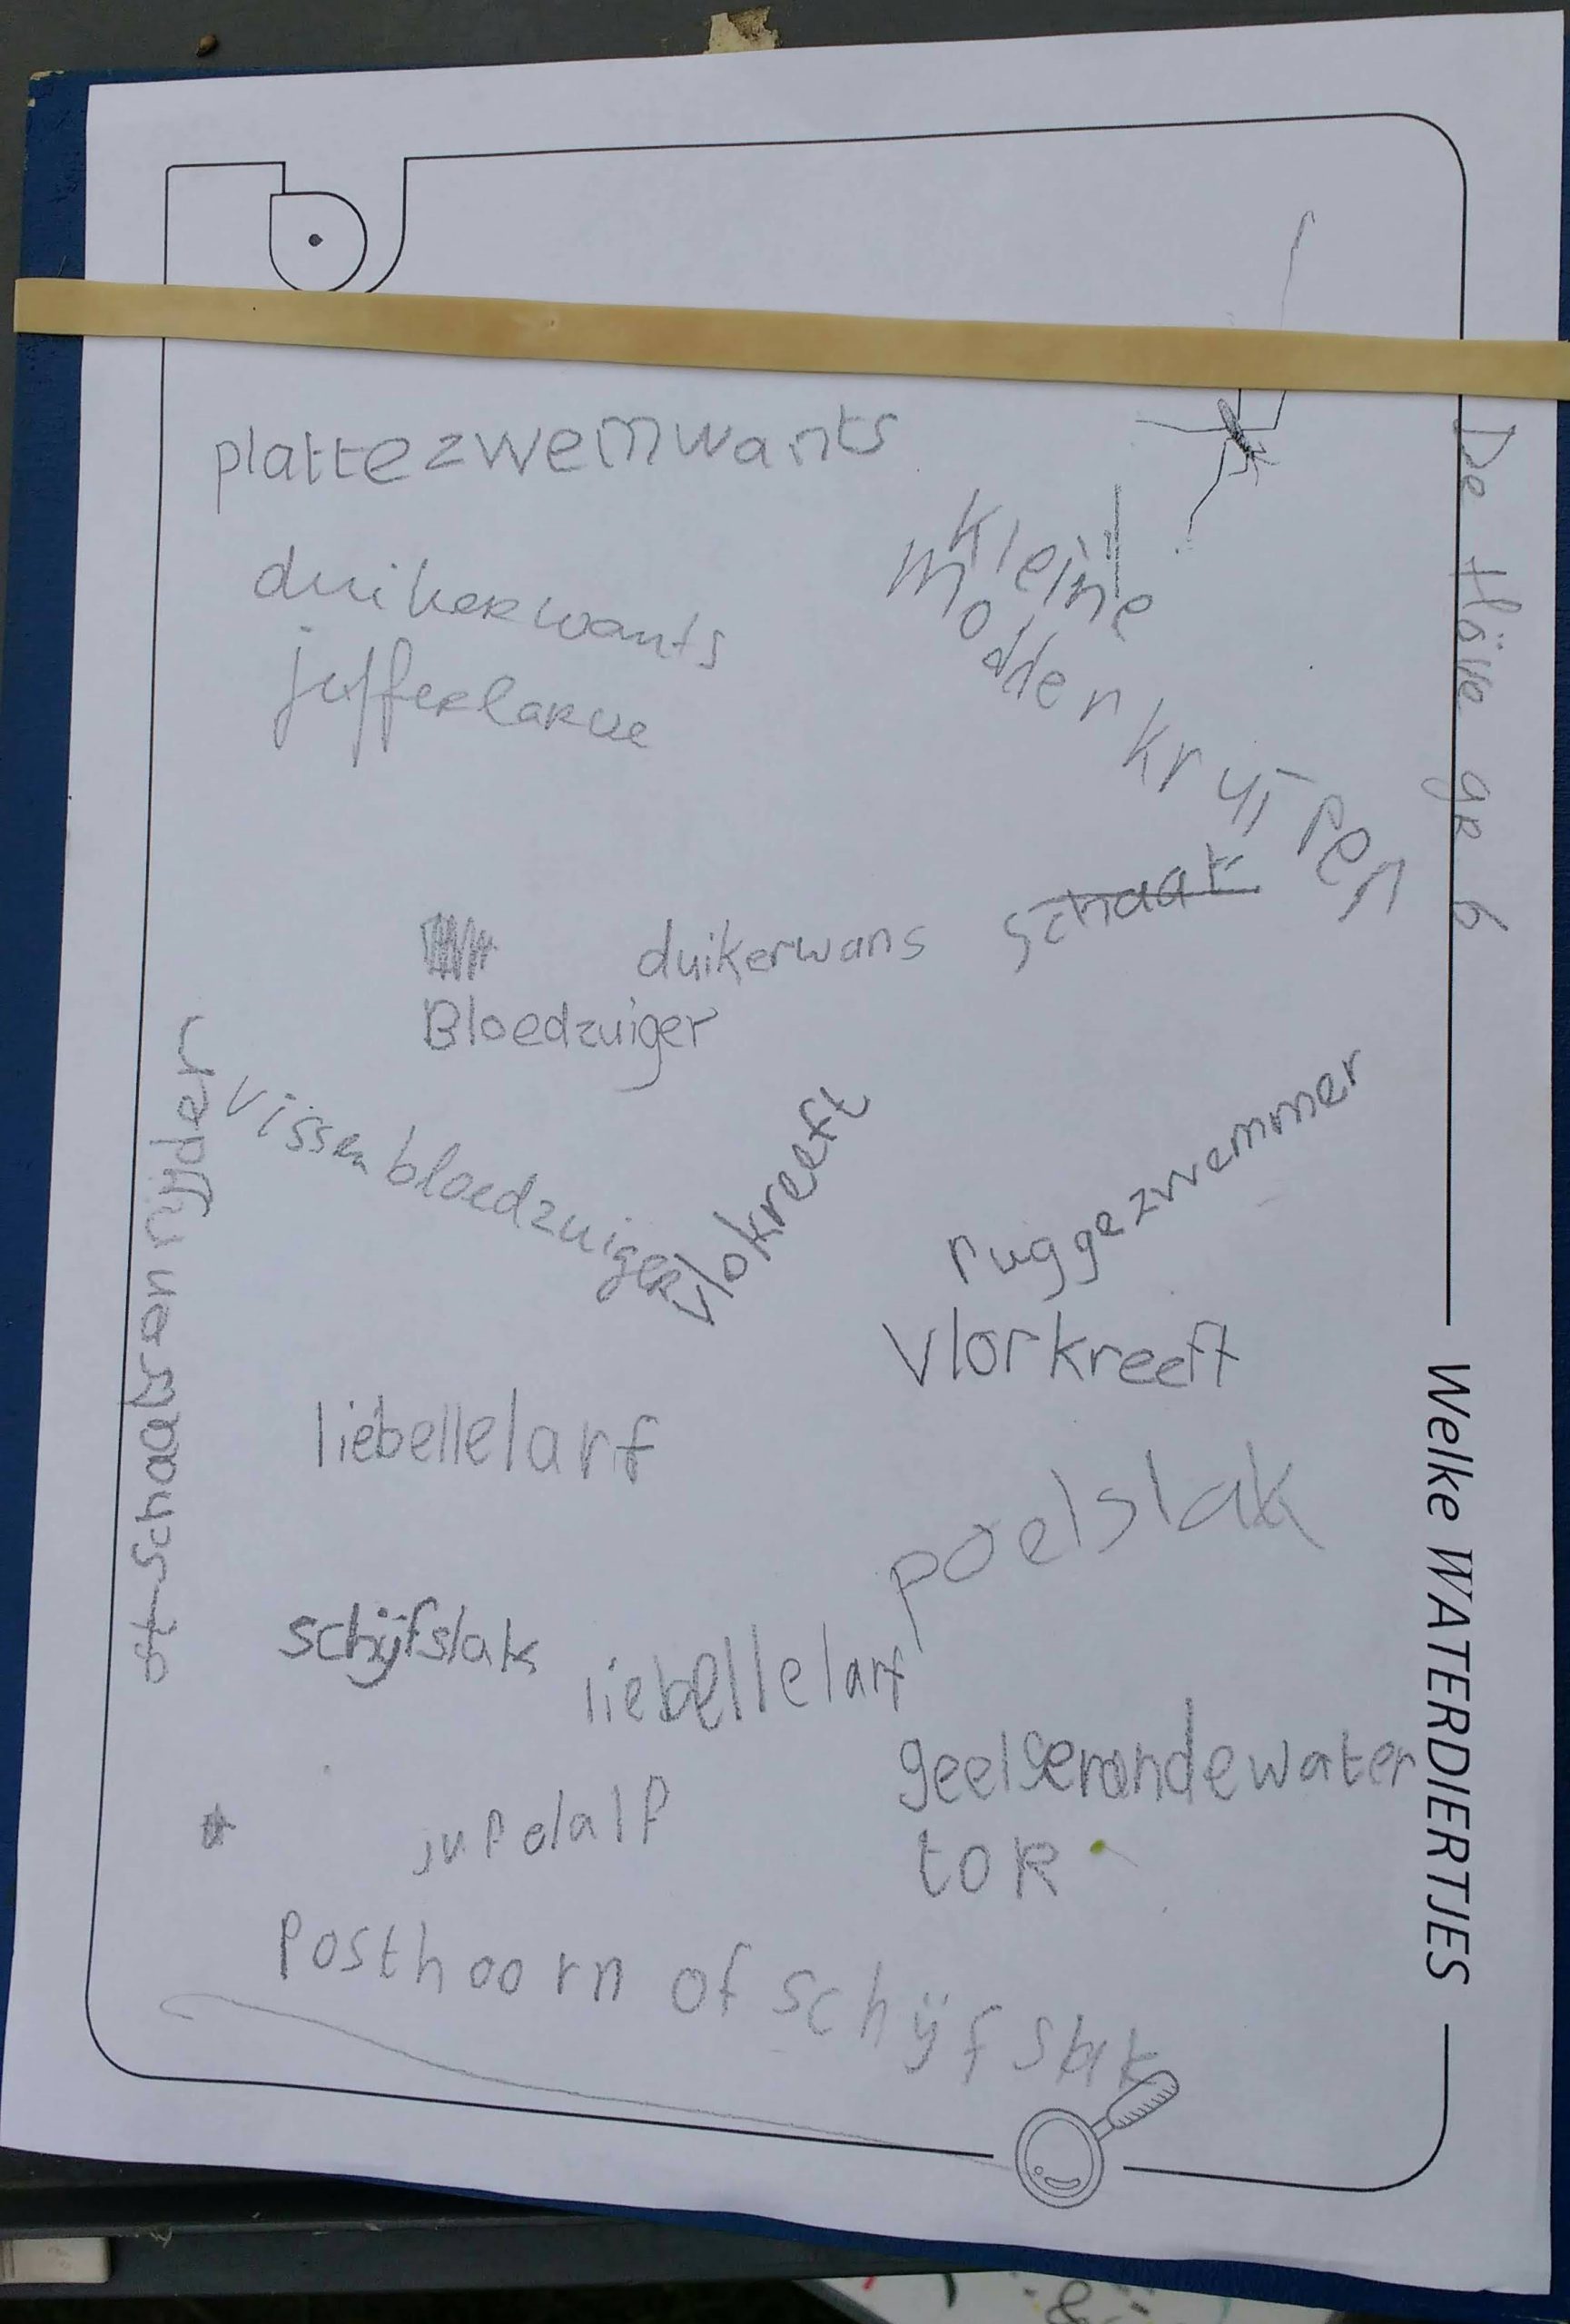 plattezwemwants
duikerwants
jufferlarve
Kleine
modderkruiper
De Höve gr 6
schaat
duikerwans
Bloedzuiger
vissenbloedzuiger
vlokreeft
ruggezwemmer
vlorkreeft
liebellelarf
poelslak
schijfslak
liebellelarf
geelgerandewater
tor
jufelalf
Posthoorn of schijfslak
Welke WATERDIERTJES